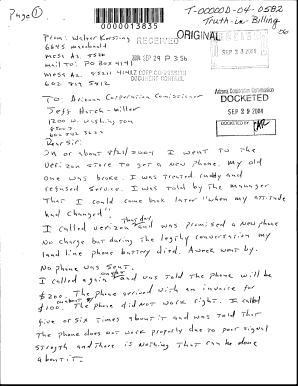 Page 1
0000013835
T-00000D-04-0582
Truth-in Billing
ORIGINAL
From: Walter
6645 macdonald
mesa Az. 8520
mail to: PO Box 4141
mesa Az. 85211 4141
602 819 5812
RECEIVED
2004 SEP 29 P 3:56
AZ CORP COMMISSION
DOCUMENT CONTROL
SEP 29 2004
Arizona Corporation Commission
DOCKETED
SEP 29 2004
DOCKETED BY
To: Arizona Corporation Commissioner
Jeff Hatch-Miller
1200 W. Washington
85007
Dear Sir:
On or about 8/21/2004 I went to the
Verizon store to get a new phone. My old
one was broke. I was treated rudely and
refused service. I was told by the manager
That I could come back later "when my attitude
had changed".
I called verizon Thursday and was promised a new phone
No charge but during the legthy conversation my
land line phone battery died. A week went by.
No phone was sent.
I called again and was told the phone will be
$200. The phone arrived with an invoice for
$100. The phone did not work right. I called
five or six times about it and was told that
The phone does not work properly due to poor signal
strength and there is nothing that can be done
about it.